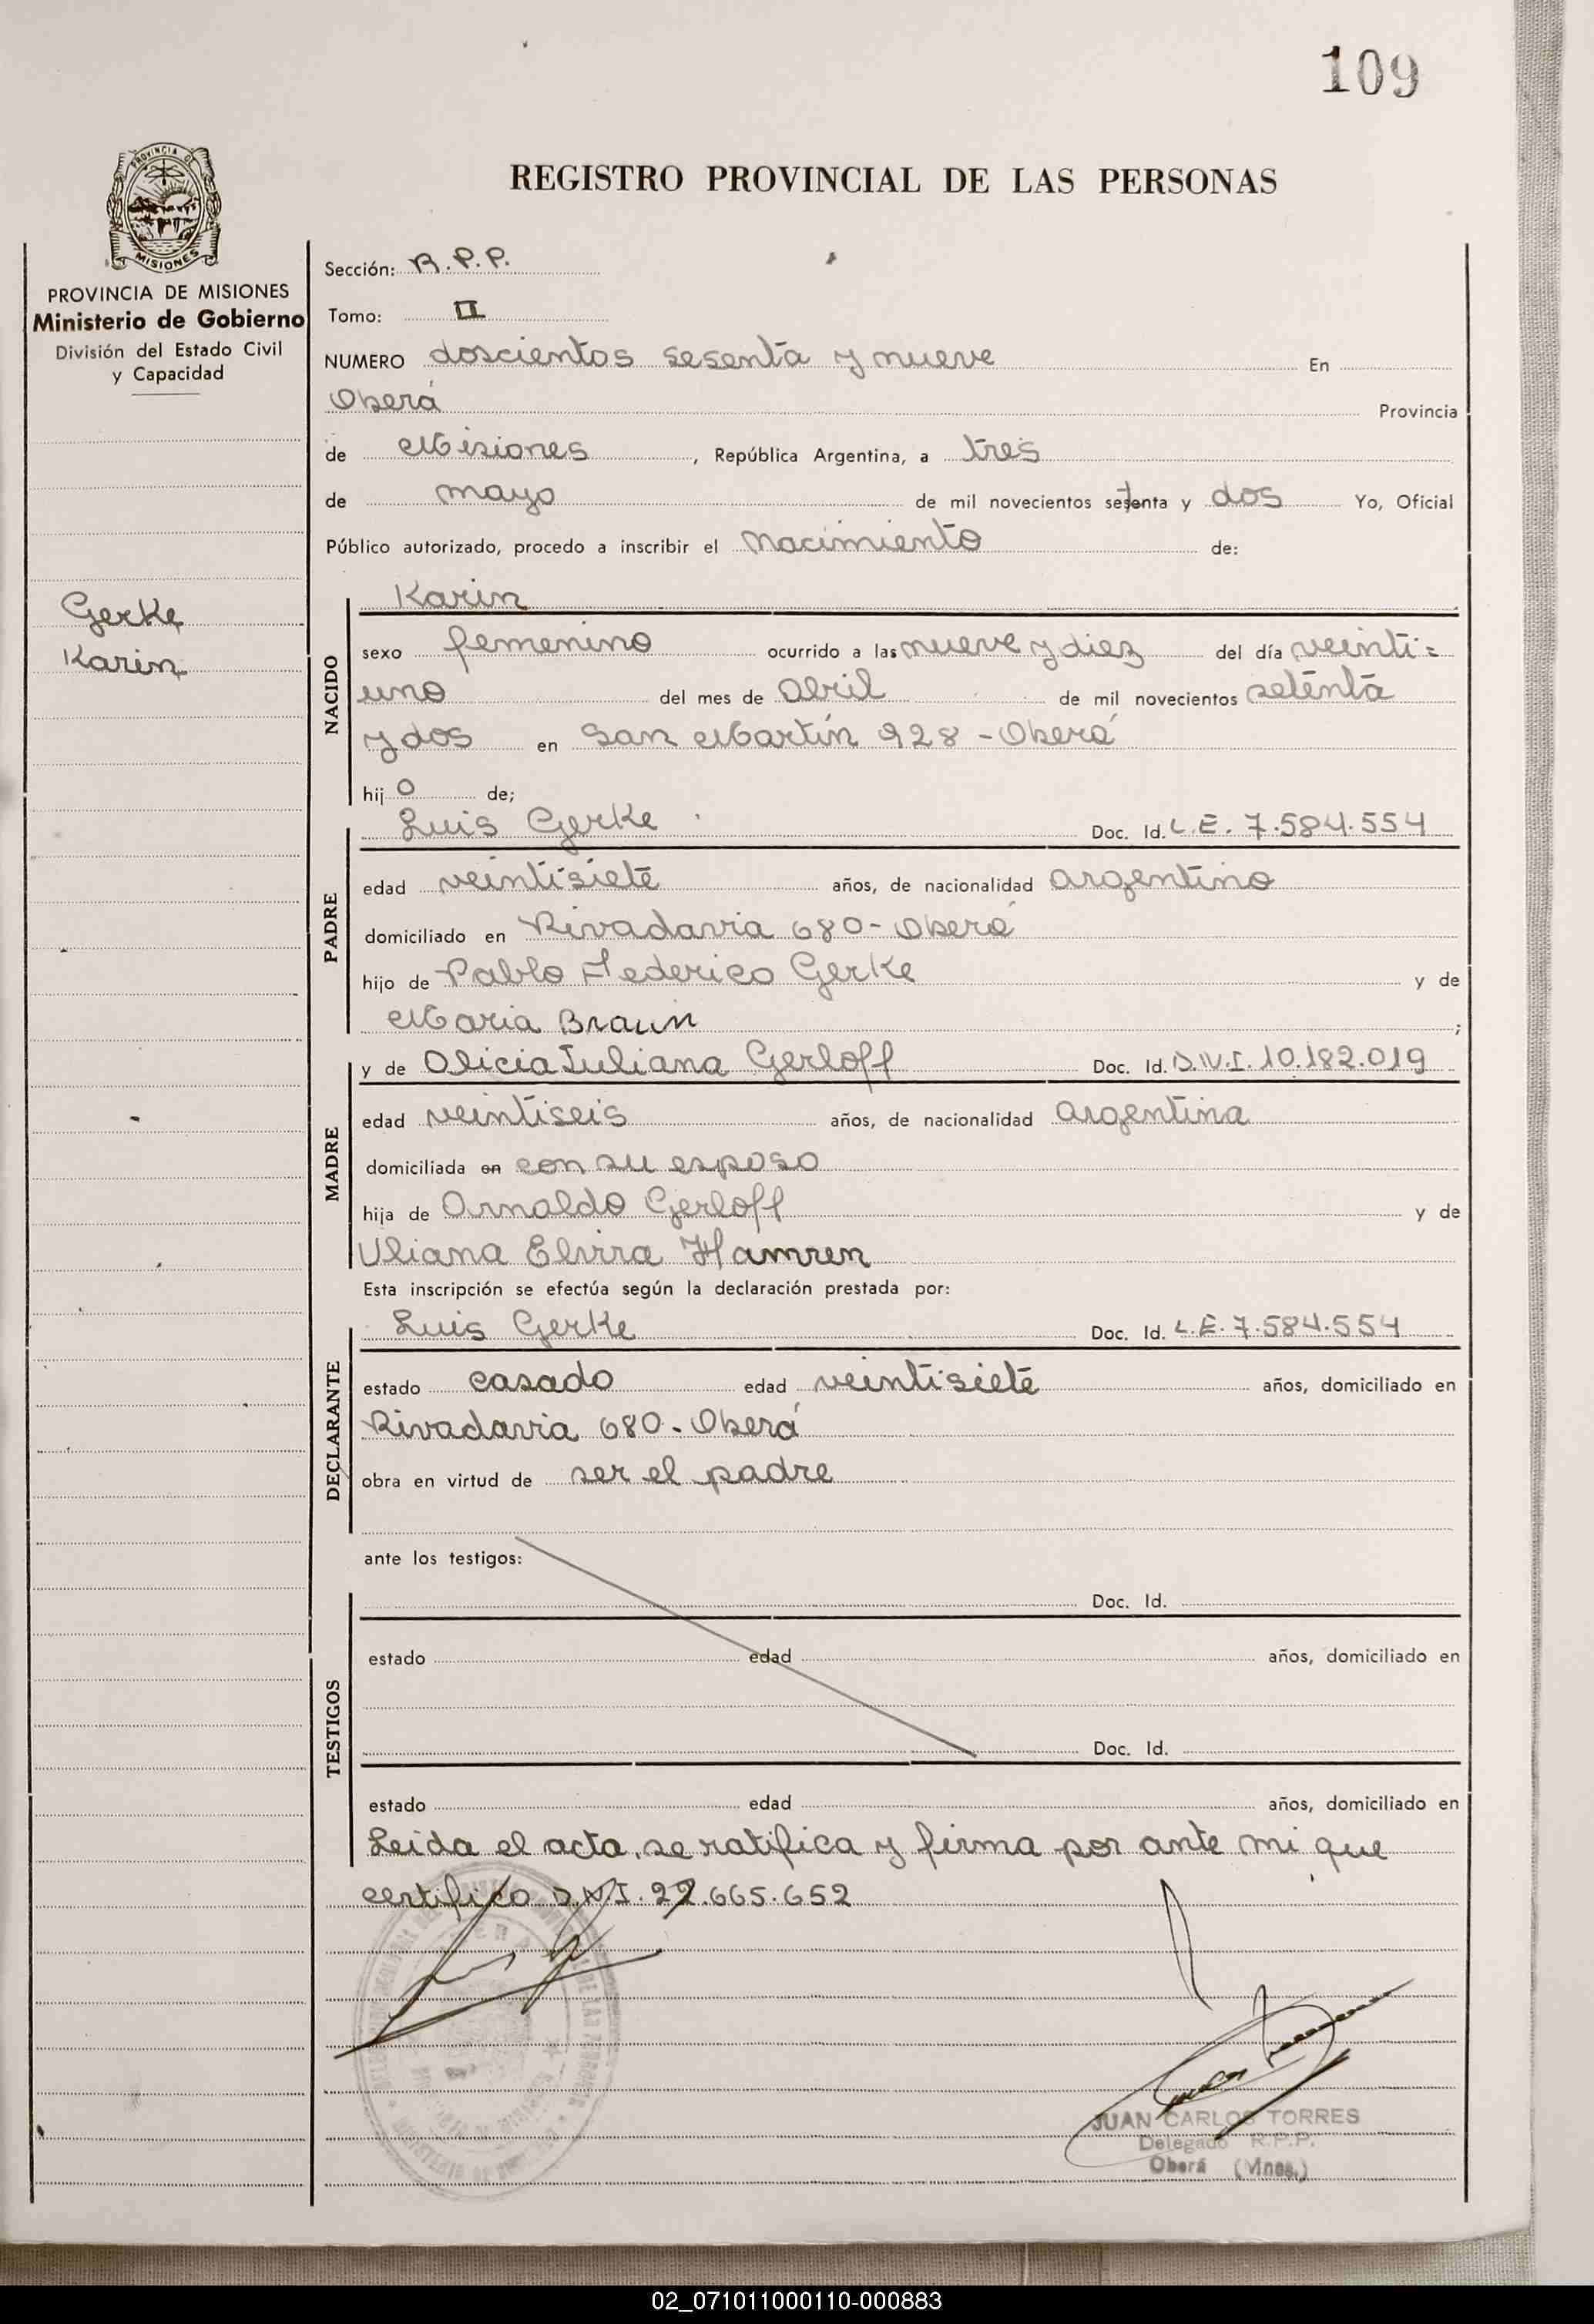 109
REGISTRO PROVINCIAL DE LAS PERSONAS
PROVINCIA DE
MISIONES
PROVINCIA DE MISIONES
Ministerio de Gobierno
División del Estado Civil
y Capacidad
Gerke
Karin
Sección: R.P.P.
Tomo: II
NUMERO doscientos sesenta y nueve En
Oberá Provincia
de Misiones, República Argentina, a tres
de mayo de mil novecientos setenta y dos Yo, Oficial
Público autorizado, procedo a inscribir el Nacimiento de:
NACIDO
Karin
sexo femenino ocurrido a las nueve y diez del día veinti=
uno del mes de Abril de mil novecientos setenta
y dos en San Martín 928 - Oberá
hijo de;
PADRE
Luis Gerke Doc. Id. L.E. 7.584.554
edad veintisiete años, de nacionalidad argentino
domiciliado en Rivadavia 680 - Oberá
hijo de Pablo Federico Gerke y de
Maria Braun ;
MADRE
y de Alicia Juliana Gerloff Doc. Id. D.N.I. 10.182.019
edad veintiseis años, de nacionalidad argentina
domiciliada en con su esposo
hija de Arnaldo Gerloff y de
Uliana Elvira Hamren
Esta inscripción se efectúa según la declaración prestada por:
DECLARANTE
Luis Gerke Doc. Id. L.E. 7.584.554
estado casado edad veintisiete años, domiciliado en
Rivadavia 680 - Oberá
obra en virtud de ser el padre
ante los testigos:
TESTIGOS
Doc. Id.
estado edad años, domiciliado en
Doc. Id.
estado edad años, domiciliado en
Leida el acta, se ratifica y firma por ante mi que
certifico D.N.I. 22.665.652
JUAN CARLOS TORRES
Delegado R.P.P.
Oberá (Mnes.)
02_071011000110-000883